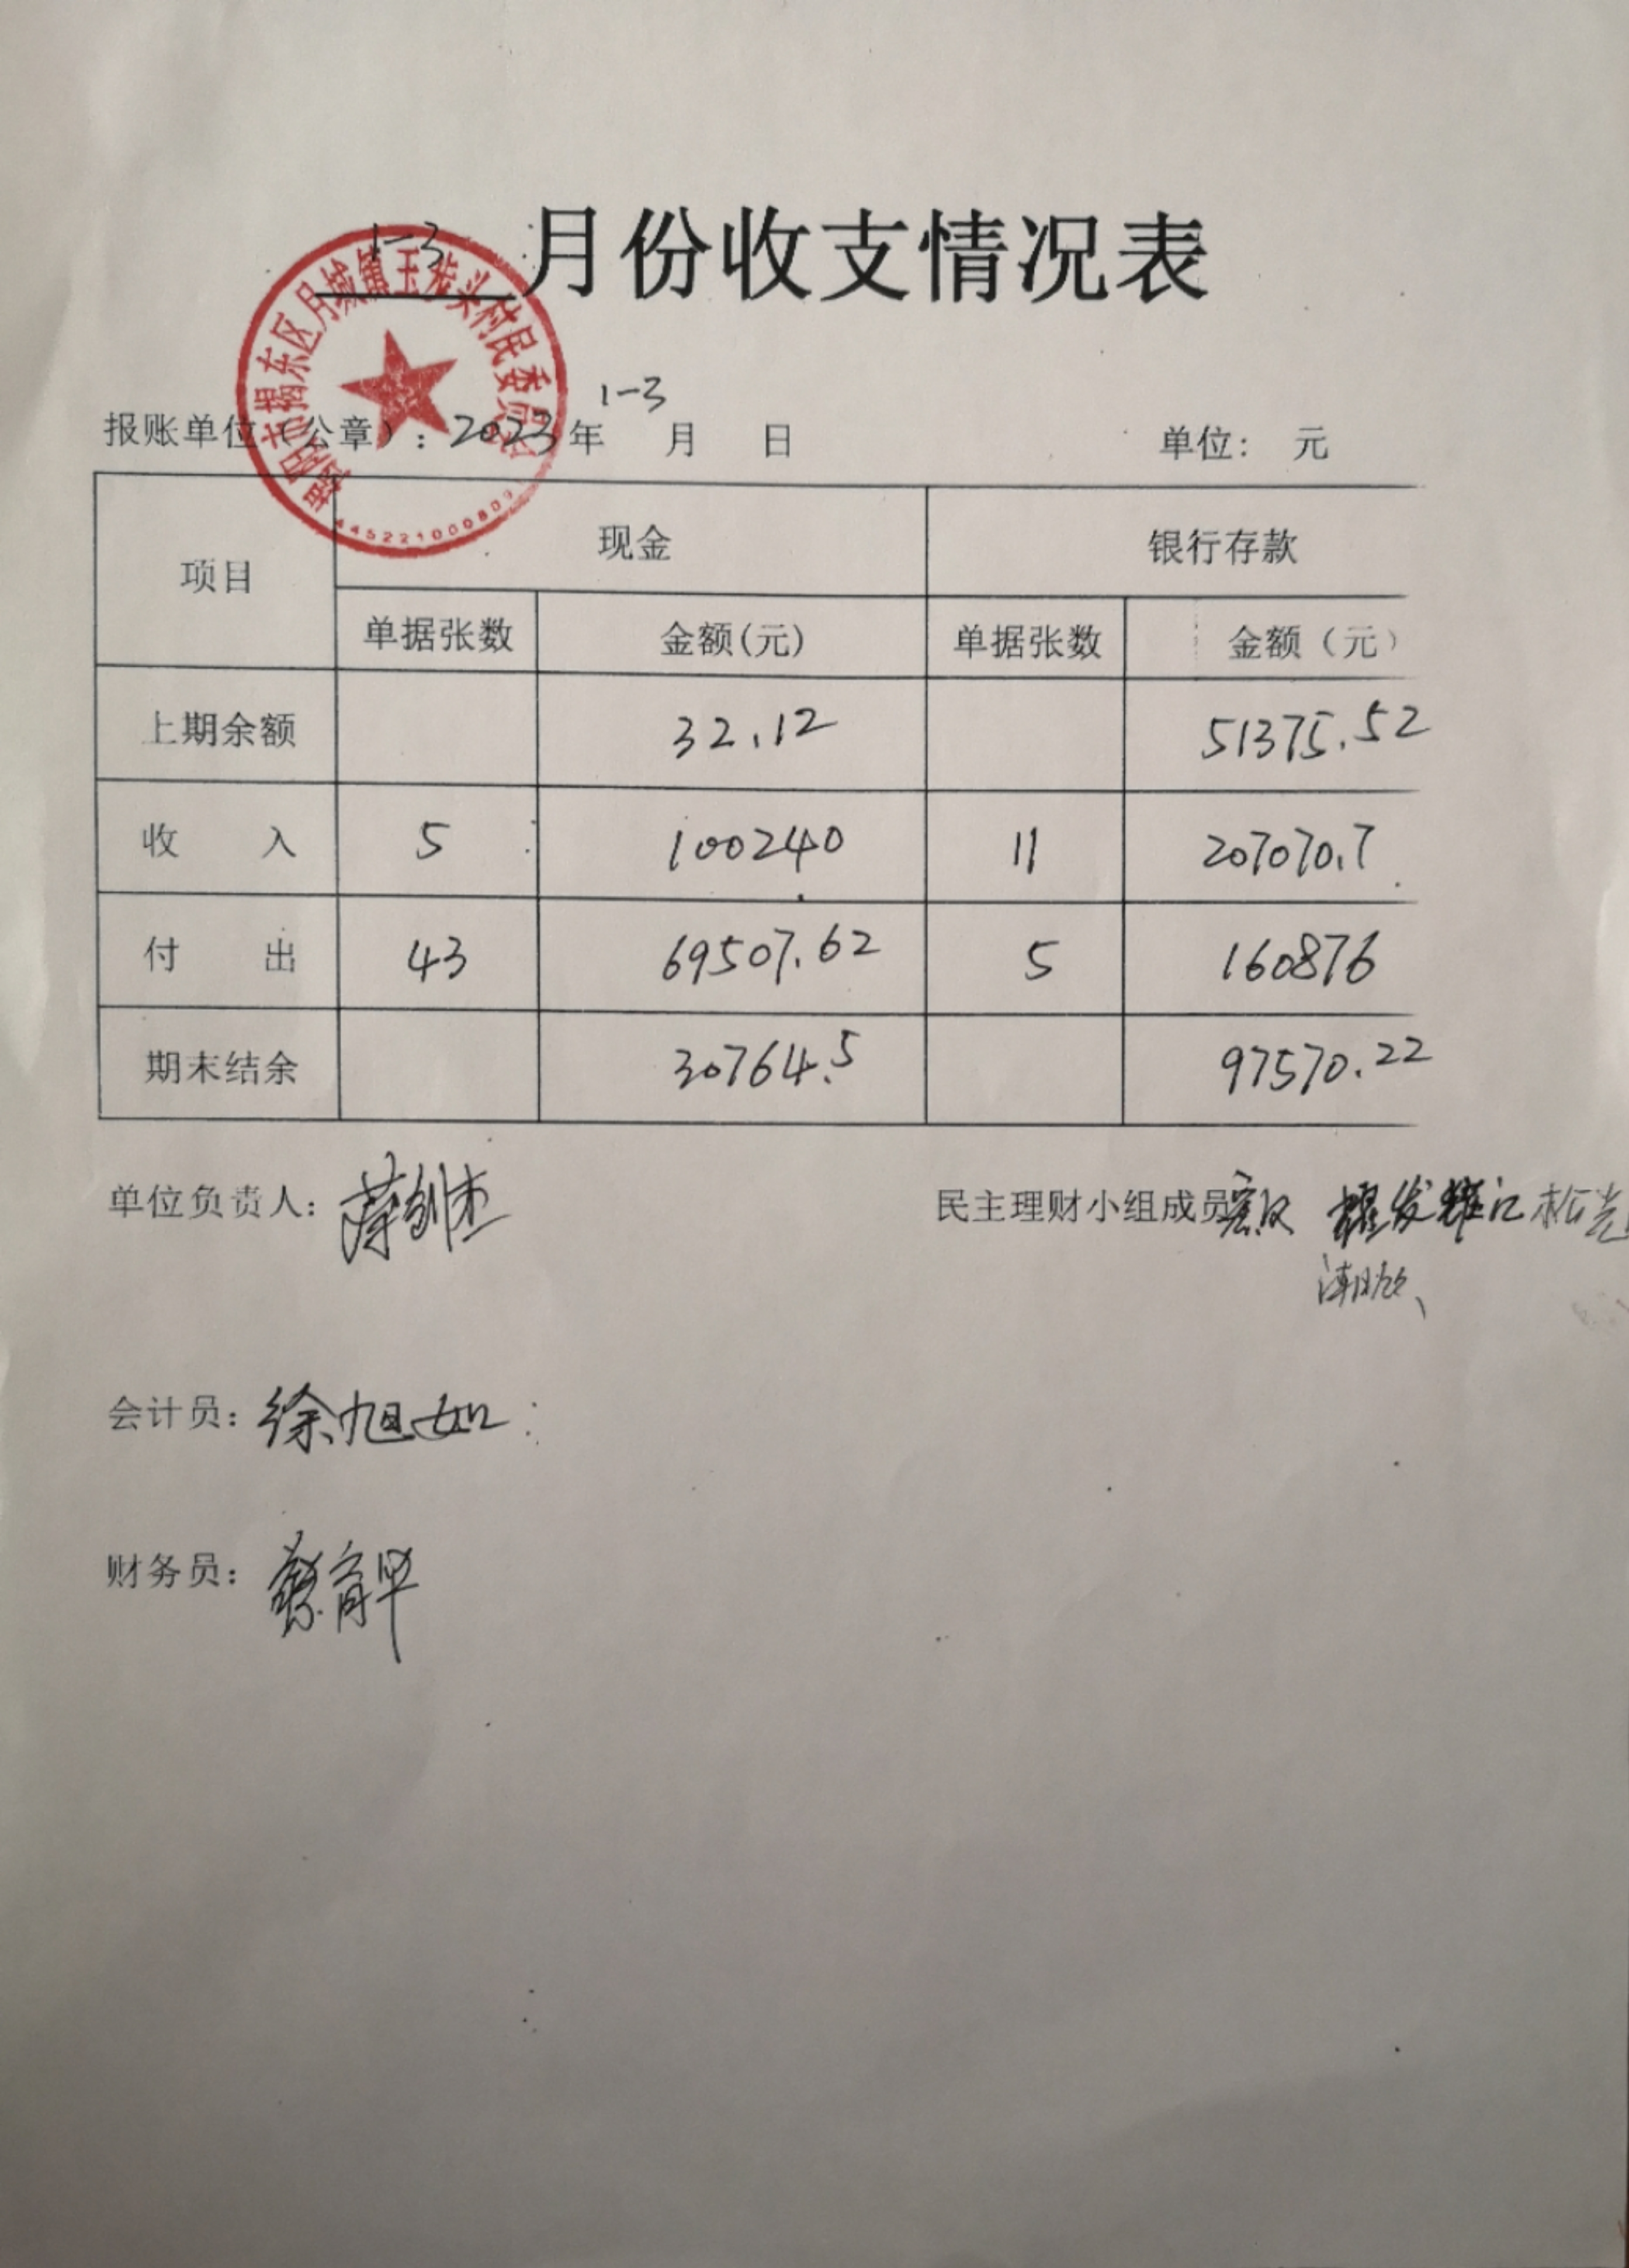 1-3月份收支情况表
揭阳市揭东区月城镇玉柴头村民委员会
1-3
报账单位(公章):2023年 月 日 单位: 元
项目 现金 银行存款
单据张数 金额(元) 单据张数 金额(元)
上期余额 32.12 51375.52
收 入 5 100240 11 207070.7
付 出 43 69507.62 5 160876
期末结余 30764.5 97570.22
单位负责人: 民主理财小组成员 松光
会计员:徐旭如
财务员: